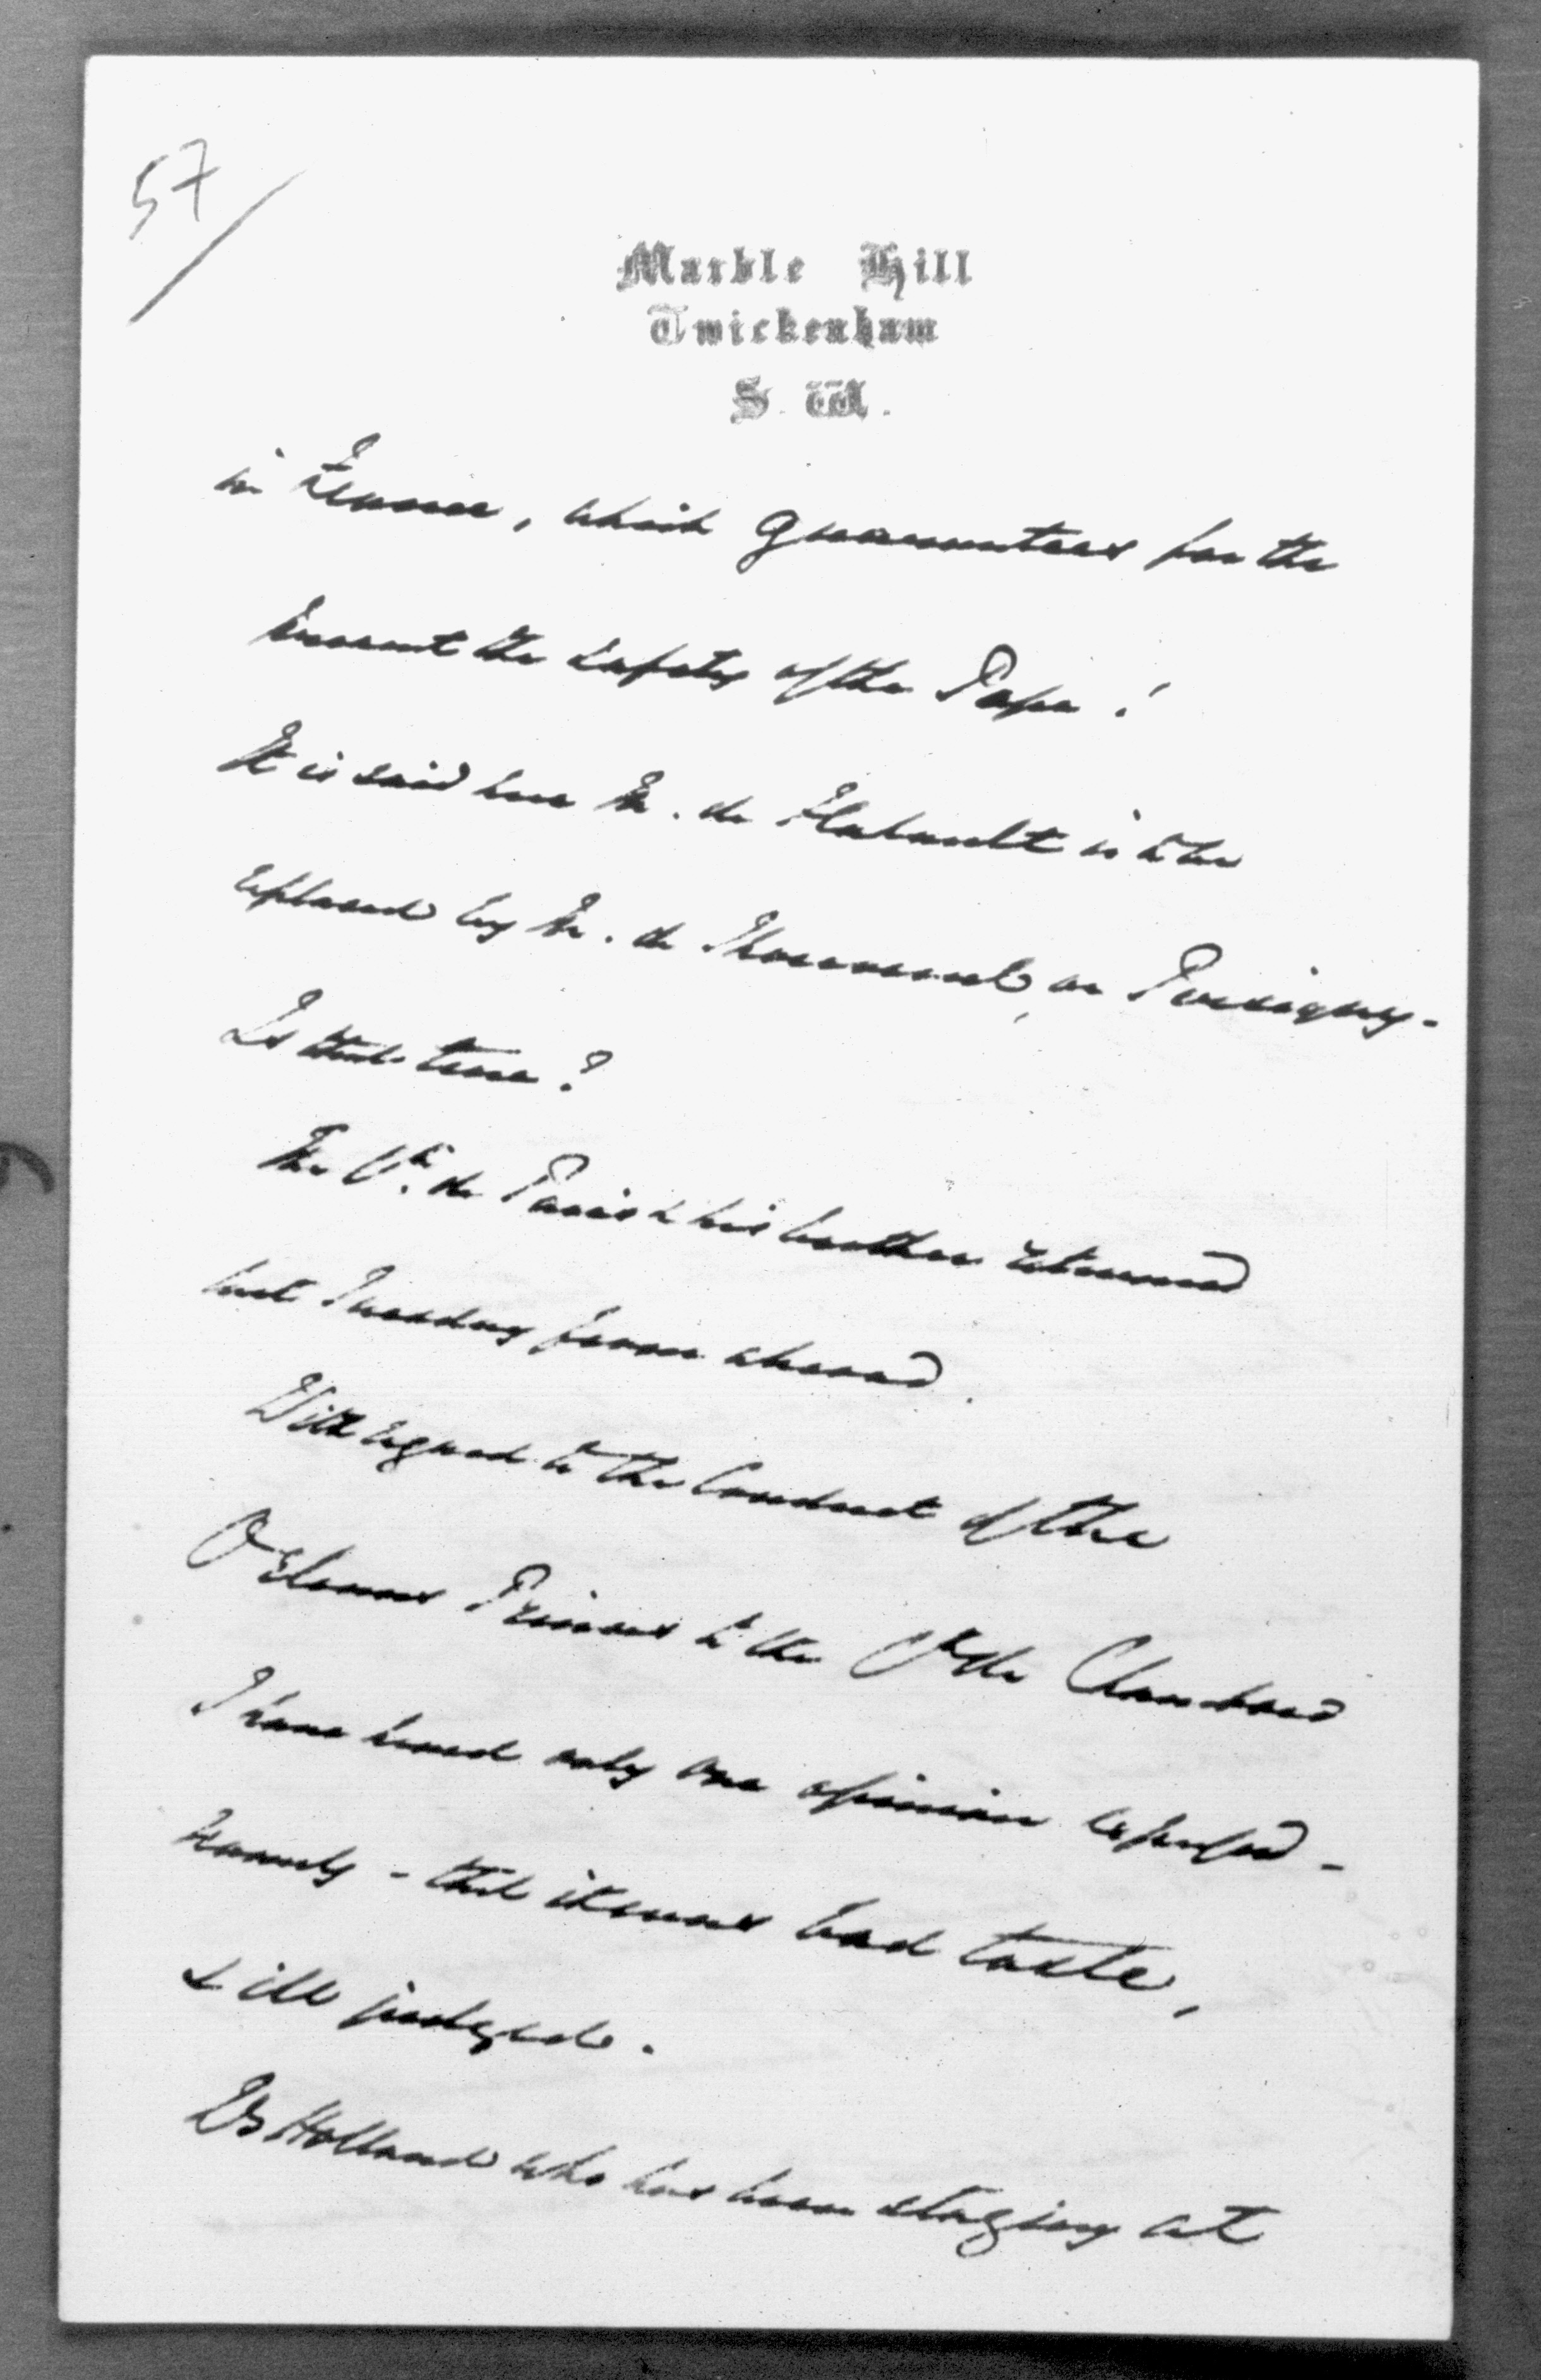 57
Marble Hill
Twickenham
S. W.
in France, which guarantees for the
present the safety of the Pope!
It is said here M. de Flahault is to be
replaced by M. de Thouvenel, or Persigny.
Is that true?
The Cte. de Paris & his brother returned
last Tuesday from abroad.
With regard to the Conduct of the
Orleans Princes to the Cte de Chambord
I have heard only one opinion expressed -
namely - that it was bad taste,
& ill judged.
Ld Holland who has been staying at